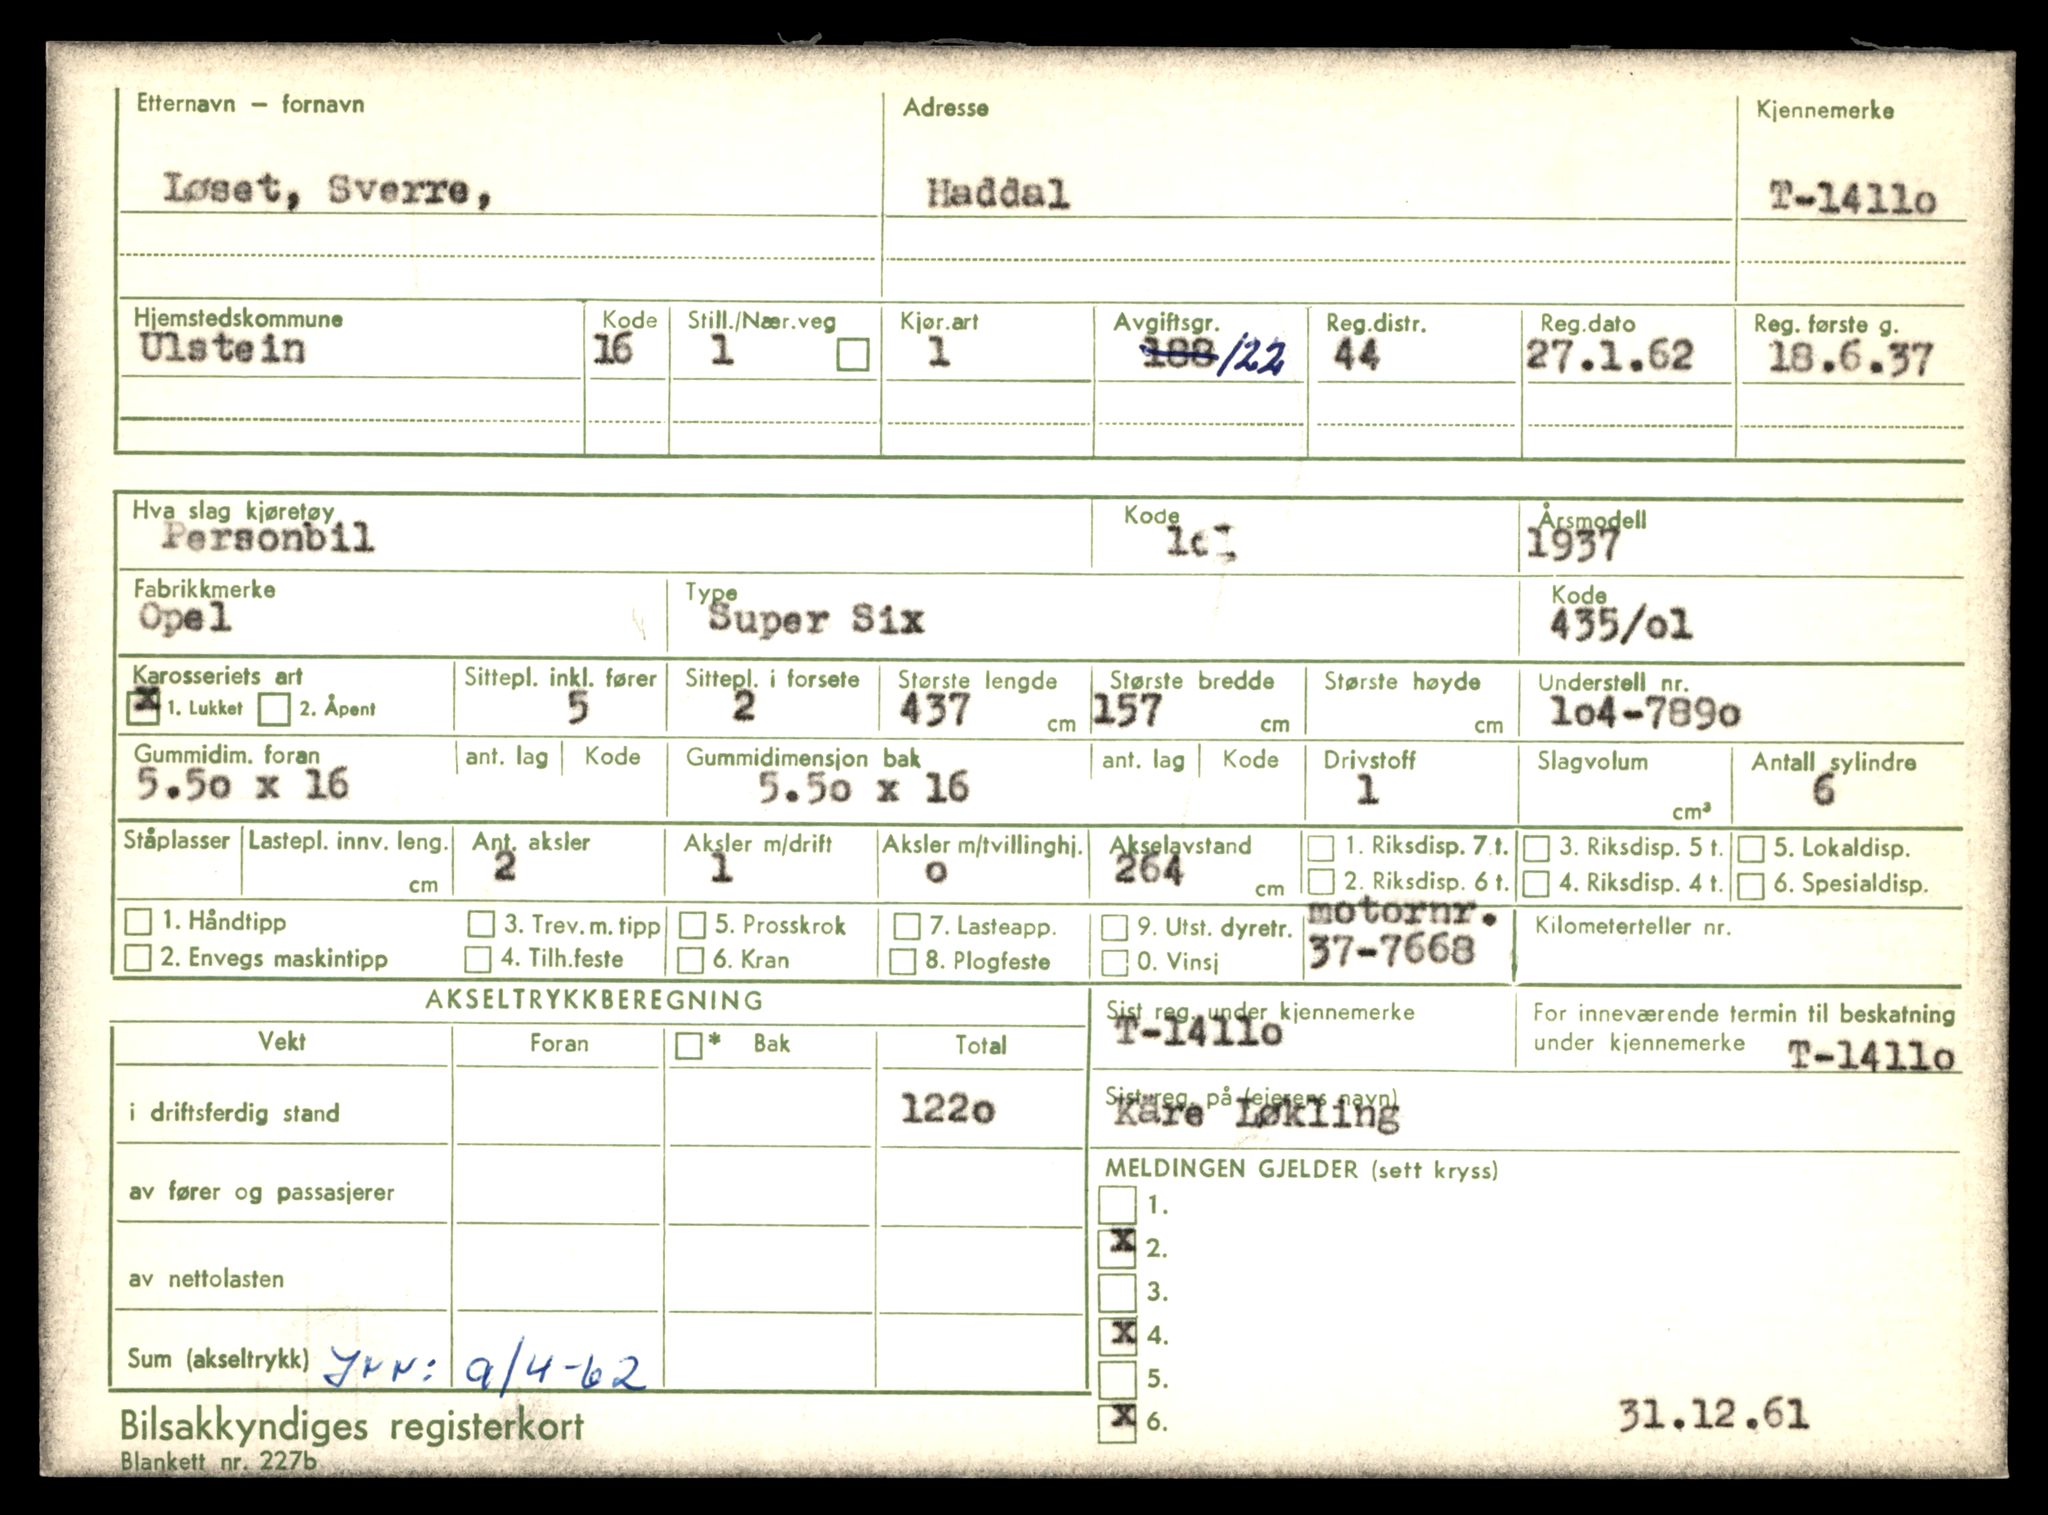 Etternavn — fornavn Adresse Kjennemerke
Løset, Sverre, Haddal T-1411o
Hjemstedskommune Kode Still./Nær.veg Kjør.art Avgiftsgr. Reg.distr. Reg.dato Reg. første g.
Ulstein 16 1 1 188/22 44 27.1.62 18.6.37
Hva slag kjøretøy Kode Årsmodell
Personbil 1937
Fabrikkmerke Type Kode
Opel Super Six 435/o1
Karosseriets art Sittepl. inkl. fører Sittepl. i forsete Største lengde Største bredde Største høyde Understell nr.
x 1. Lukket 2. Åpent 5 2 437 cm 157 cm cm 1o4-789o
Gummidim. foran ant. lag Kode Gummidimensjon bak ant. lag Kode Drivstoff Slagvolum Antall sylindre
5.5o x 16 5.5o x 16 1 cm³ 6
Ståplasser Lastepl. innv. leng. Ant. aksler Aksler m/drift Aksler m/tvillinghj. Akselavstand 1. Riksdisp. 7 t. 3. Riksdisp. 5 t. 5. Lokaldisp.
cm 2 1 o 264 cm 2. Riksdisp. 6 t. 4. Riksdisp. 4 t. 6. Spesialdisp.
1. Håndtipp 3. Trev. m. tipp 5. Prosskrok 7. Lasteapp. 9. Utst. dyretr. motornr. Kilometerteller nr.
2. Envegs maskintipp 4. Tilh.feste 6. Kran 8. Plogfeste 0. Vinsj 37-7668
AKSELTRYKKBEREGNING
Sist reg. under kjennemerke For inneværende termin til beskatning
T-1411o under kjennemerke T-1411o
Vekt Foran * Bak Total
i driftsferdig stand 122o
Sist reg. på (eierens navn)
Kåre Løkling
av fører og passasjerer
av nettolasten
Sum (akseltrykk) Inn: 9/4-62
MELDINGEN GJELDER (sett kryss)
1.
x 2.
3.
x 4.
5.
x 6. 31.12.61
Bilsakkyndiges registerkort
Blankett nr. 227b